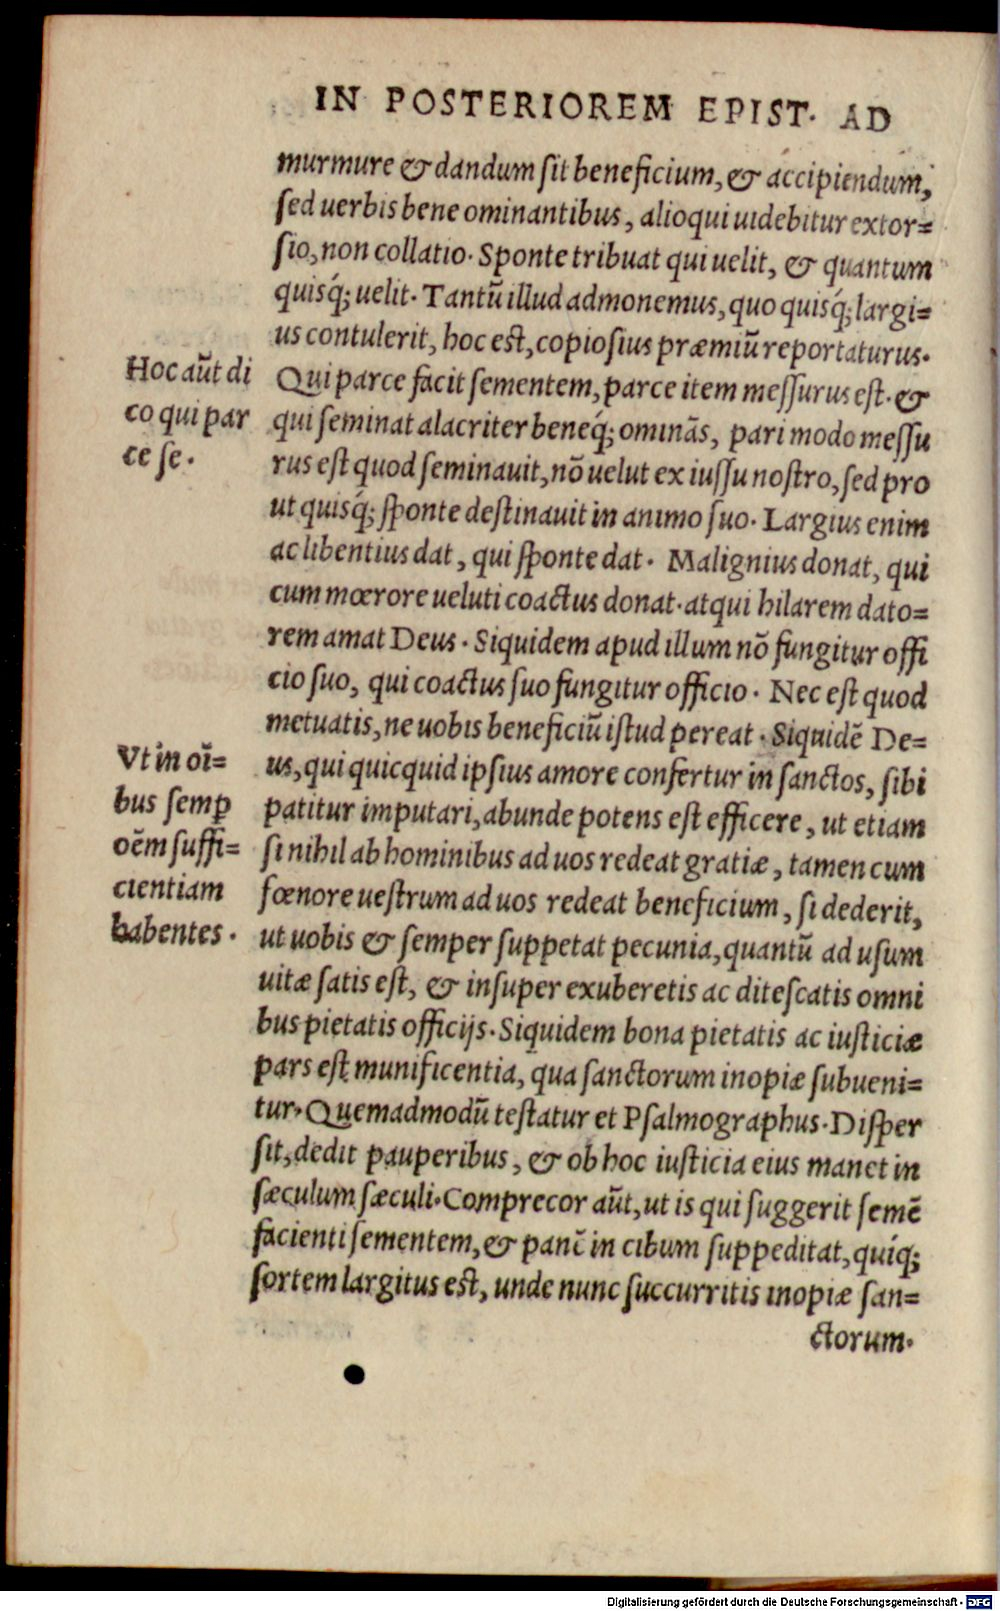 IN POSTERIOREM EPIST. AD
murmure & dandum sit beneficium, & accipiendum,
sed uerbis bene ominantibus, alioqui uidebitur extor=
sio, non collatio. Sponte tribuat qui uelit, & quantum
quisq́; uelit. Tantū illud admonemus, quo quisq́; largi=
us contulerit, hoc est, copiosius præmiū reportaturus.
Qui parce facit sementem, parce item messurus est. &
qui seminat alacriter beneq́; ominās, pari modo messu
rus est quod seminauit, nō uelut ex iussu nostro, sed pro
ut quisq́; sponte destinauit in animo suo. Largius enim
ac libentius dat, qui sponte dat. Malignius donat, qui
cum mœrore ueluti coactus donat. atqui hilarem dato=
rem amat Deus. Siquidem apud illum nō fungitur offi
cio suo, qui coactus suo fungitur officio. Nec est quod
metuatis, ne uobis beneficiū istud pereat. Siquidē De=
us, qui quicquid ipsius amore confertur in sanctos, sibi
patitur imputari, abunde potens est efficere, ut etiam
si nihil ab hominibus ad uos redeat gratiæ, tamen cum
fœnore uestrum ad uos redeat beneficium, si dederit,
ut uobis & semper suppetat pecunia, quantū ad usum
uitæ satis est, & insuper exuberetis ac ditescatis omni
bus pietatis officijs. Siquidem bona pietatis ac iusticiæ
pars est munificentia, qua sanctorum inopiæ subueni=
tur. Quemadmodū testatur et Psalmographus. Disper
sit, dedit pauperibus, & ob hoc iusticia eius manet in
sæculum sæculi. Comprecor aūt, ut is qui suggerit semē
facienti sementem, & panē in cibum suppeditat, quiq́;
sortem largitus est, unde nunc succurritis inopiæ san=
ctorum.
Hoc aūt di
co qui par
ce se.
Vt in oī=
bus semꝑ
oēm suffi=
cientiam
habentes.
Digitalisierung gefördert durch die Deutsche Forschungsgemeinschaft - DFG